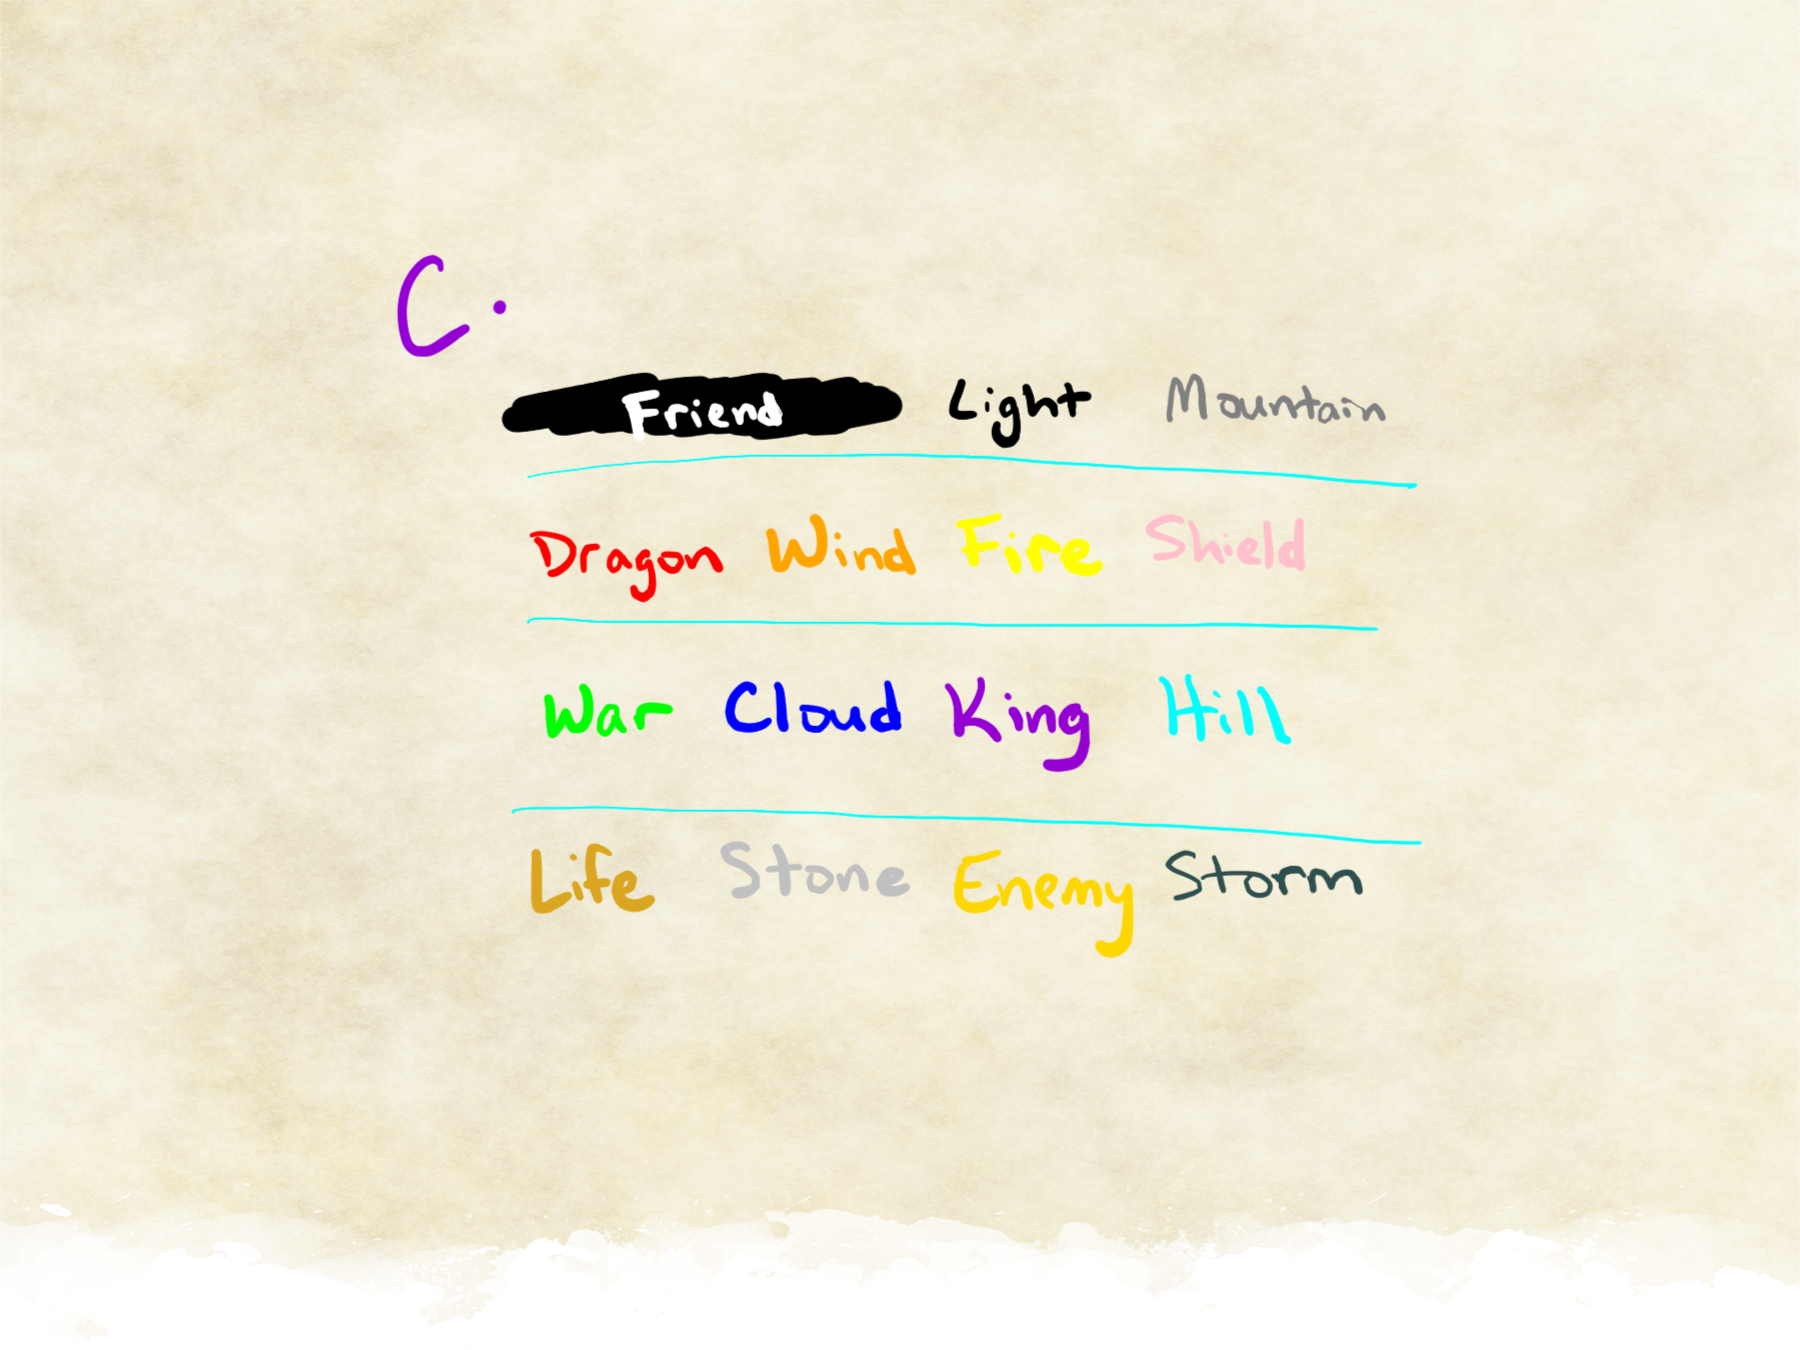 C.
Friend Light Mountain
Dragon Wind Fire Shield
War Cloud King Hill
Life Stone Enemy Storm